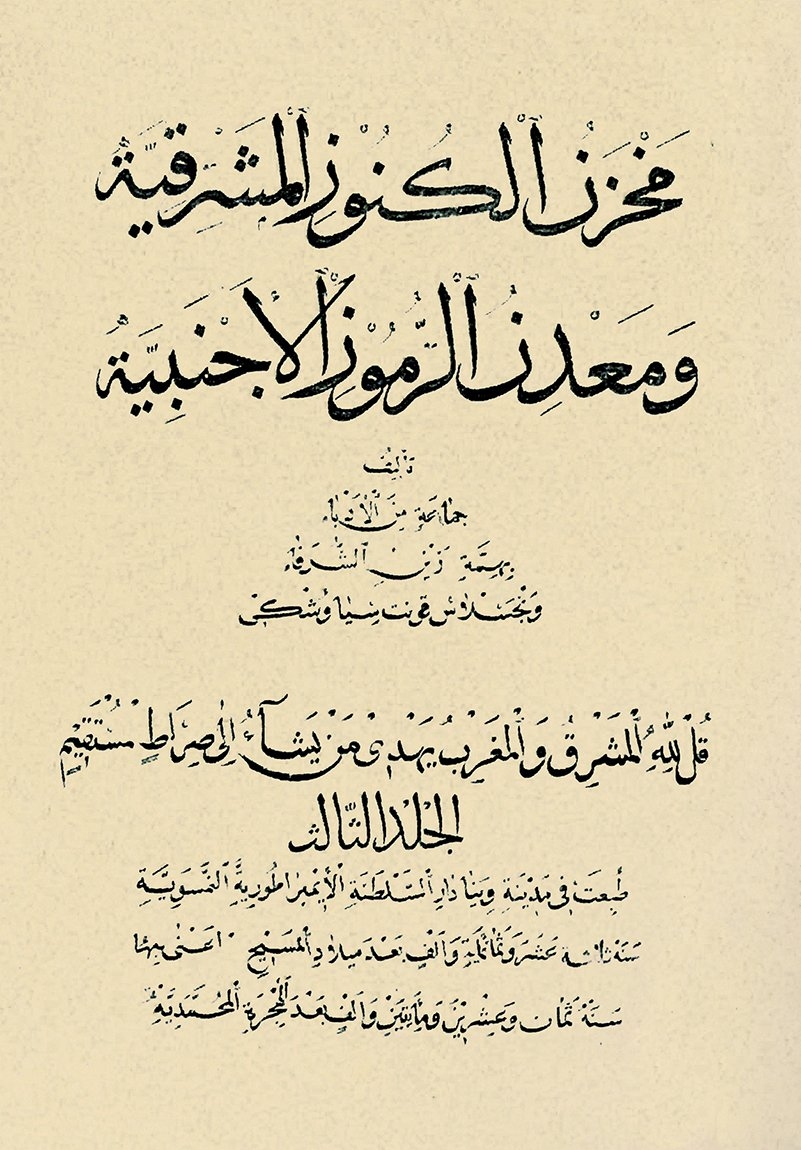 مَخْزَنُ ٱلْكُنُوْزِ ٱلْمَشْرِقِيَّةِ
وَمَعْدِنُ ٱلرُّمُوْزِ ٱلْأَجْنَبِيَّةِ
تَأْلِيْفُ
جَمَاعَةٍ مِنَ ٱلْأُدَبَاءِ
بِهِمَّةِ زَيْنِ ٱلشُّرَفَاءِ
قُلْ لِلّٰهِ ٱلْمَشْرِقُ وَٱلْمَغْرِبُ يَهْدِىْ مَنْ يَشَآءُ إِلٰى صِرَاطٍ مُسْتَقِيْمٍ
اَلْجِلْدُ الثَّالِثُ
طُبِعَتْ فِى مَدِيْنَةِ وِيَنَا دَارِ ٱلسَّلْطَنَةِ ٱلْإِيْمْبِرَاطُورِيَّةِ ٱلنَّمْسَوِيَّةِ
سَنَةَ ثَلَاثَةَ عَشَرَ وَثَمَانِمِائَةٍ وَأَلْفٍ بَعْدَ مِيلَادِ ٱلْمَسِيْحِ
سَنَةَ ثَمَانٍ وَعِشْرِيْنَ وَمِائَتَيْنِ وَأَلْفٍ بَعْدَ ٱلْهِجْرَةِ ٱلْمُحَمَّدِيَّةِ